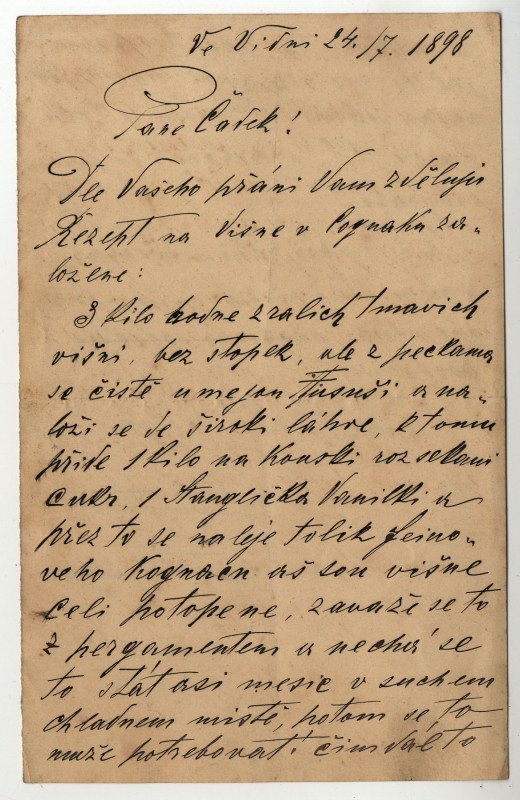 Ve Vídni 24./7. 1898
Pane Čadek!
Dle Vašeho přáni Vam zděluju
Rezept na višne v Cognaku za„
ložene:
3 kilo hodne zralich tmavich
višni, bez stopek, ale z peckama
se čistě umejou a na„
loži se do široki láhve, k tomu
přide 1 kilo na kouski rozsekani
cukr, 1 Stanglička Vanilki a
přes to se naleje tolik feino„
veho Kognacu aš sou višne
celi potopene, zavaže se to
z pergamentem a nechá se
to stát asi mesic v suchem
chladnem mistě, potom se to
muže potřebovat! čim dal to